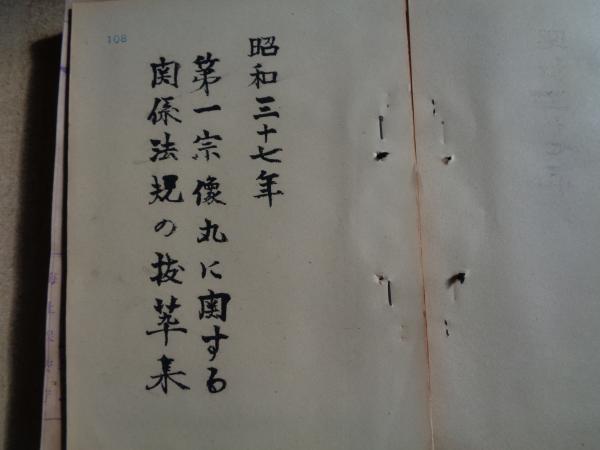 108
昭和三十七年
第一宗像丸に関する
関係法規の抜萃集